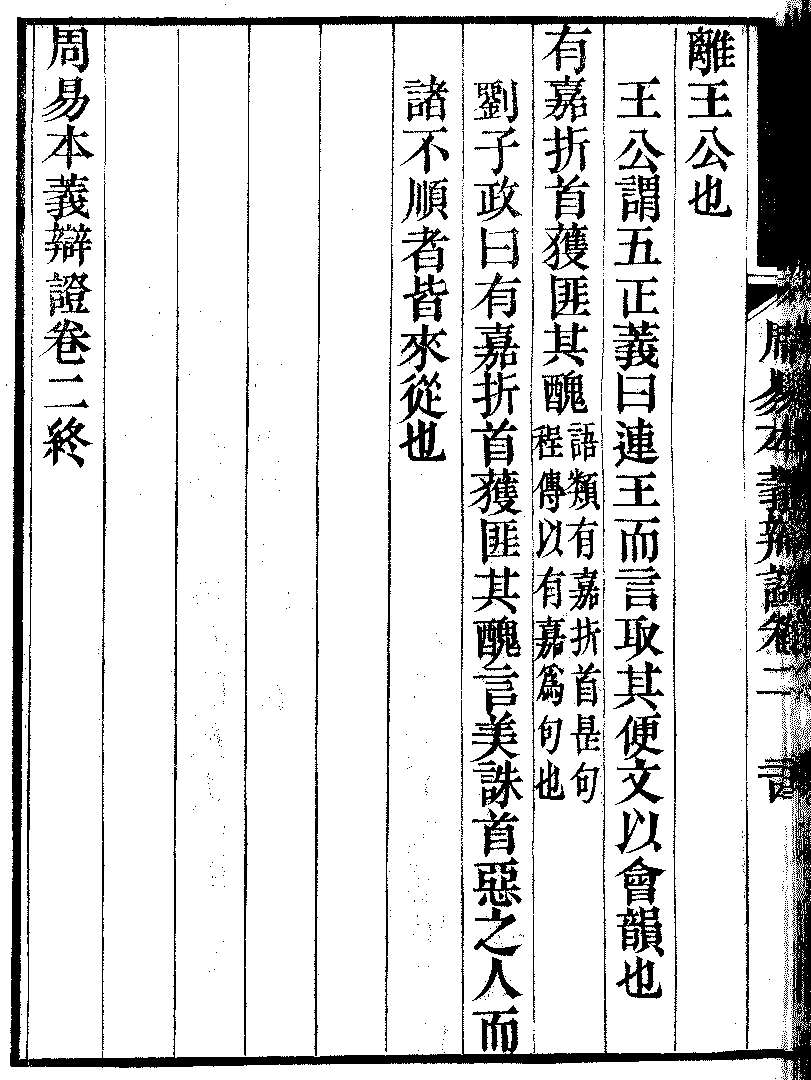 離王公也
王公謂五正義曰連王而言取其便文以會韻也
有嘉折首獲匪其醜語類有嘉折首是句程傳以有嘉爲句也
劉子政曰有嘉折首獲匪其醜言美誅首惡之人而
諸不順者皆來從也
周易本義辯證卷二終
周易本義辯證卷二